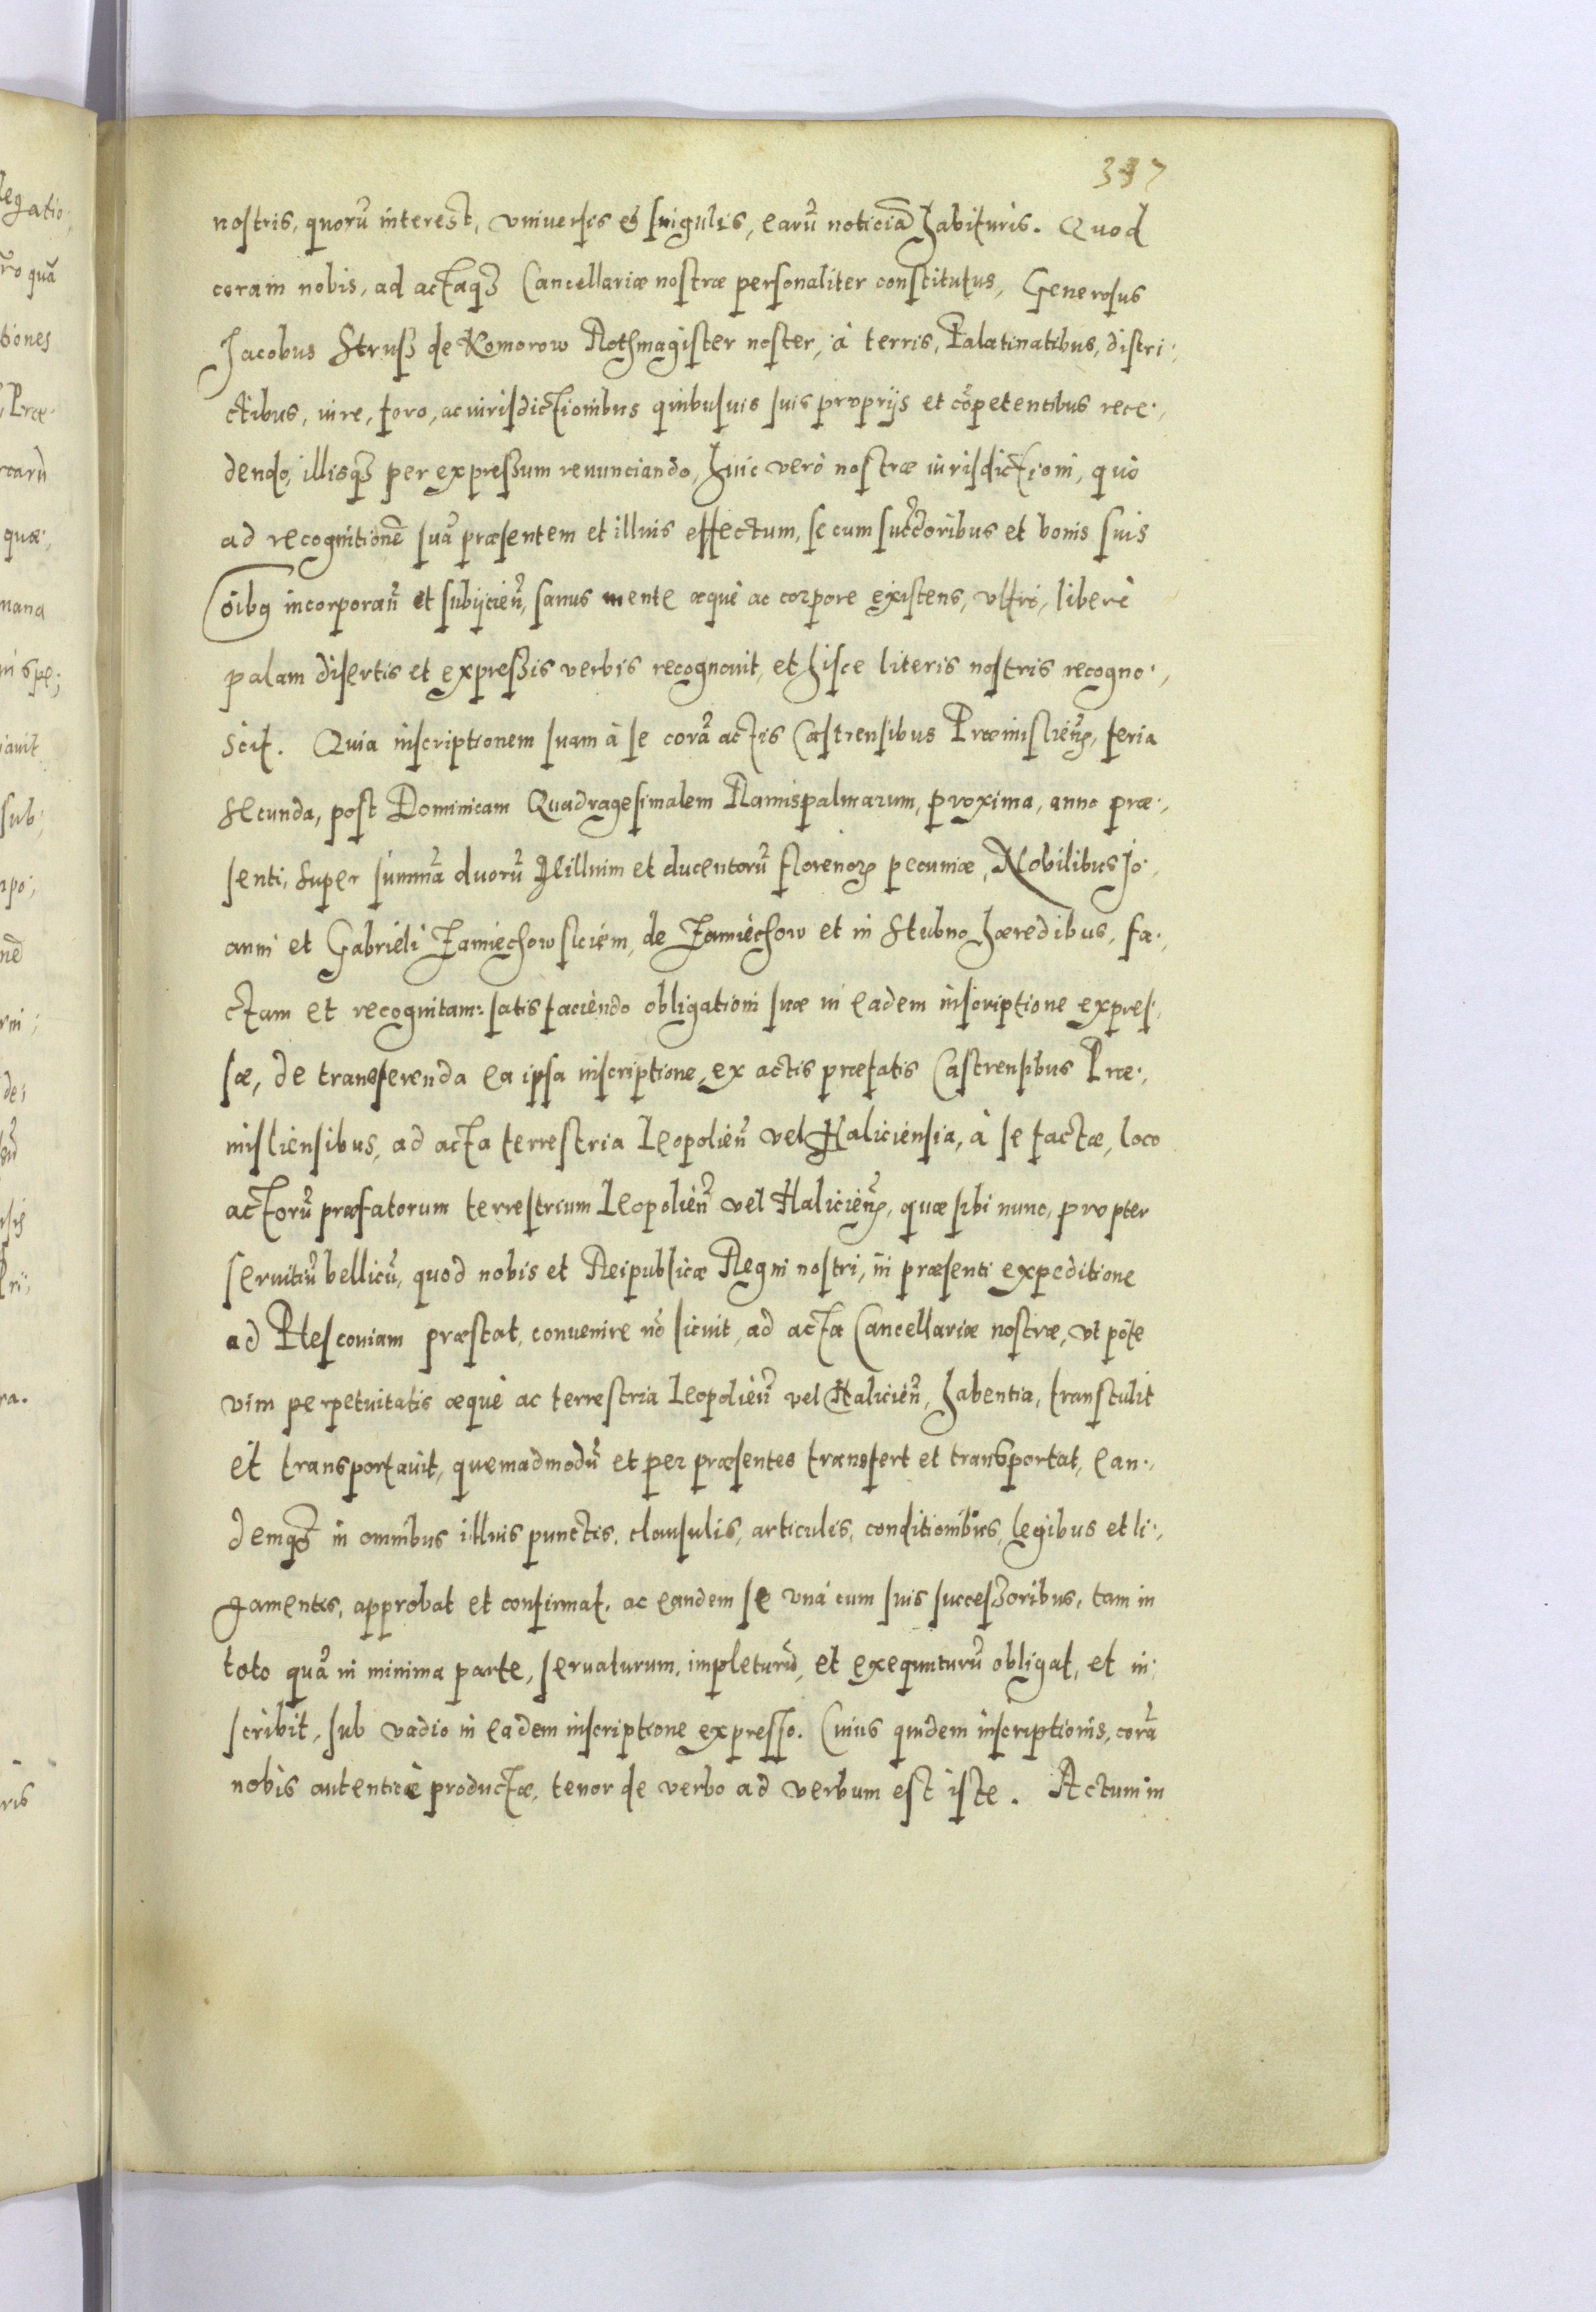 337
nostris, quorũ interest, vniuersis & singulis, earũ noticiã habituris. Quod
coram nobis, ad actaqȝ Cancellariæ nostræ personaliter constitutus, Generosus
Jacobus Struß de Komorow Rothmagister noster, à terris, Palatinatibus, distri:
ctibus, iure, foro, ac iurisdictionibus quibusuis suis proprijs et cõpetentibus rece:
dendo, illisqȝ per expreßum renunciando, huic verò nostræ iurisdictioni, quò
ad recognitionẽ suã præsentem et illius effectum, se cum succ̃oribus et bonis suis
õibꝯ incorporañ et subijcieñ, sanus mente æquè ac corpore existens, vltrò, liberè
palam disertis et expreßis verbis recognouit, et hisce literis nostris recogno:
scit. Quia inscriptionem suam à se corã actis Castrensibus Præmislieñ, feria
secunda, post Dominicam Quadragesimalem Ramispalmarum, proxima, anno præ:
senti, super summã duorũ Millium et ducentorũ florenoꝝ pecuniæ, Nobilibus Jo:
anni et Gabrieli Zamiechowsciem, de Zamiechow et in Stubno hæredibus, fa:
ctam et recognitam: satisfaciendo obligationi suæ in eadem inscriptione expres:
sæ, de transferenda ea ipsa inscriptione, ex actis præfatis Castrensibus Præ:
misliensibus, ad acta terrestria Leopolieñ vel Haliciensia, à se factæ, loco
actorũ præfatorum terrestrium Leopolieñ vel Halicieñ, quæ sibi nunc, propter
seruitiũ bellicũ, quod nobis et Reipublicæ Regni nostri, in præsenti expeditione
ad Plesconiam præstat, conuenire nõ licuit, ad acta Cancellariæ nostræ, vt põte
vim perpetuitatis æquè ac terrestria Leopolieñ vel Halicieñ, habentia, transtulit
et transportauit, quemadmodũ et per præsentes transfert et transportat, ean:
demqȝ in omnibus illius punctis, clausulis, articulis, conditionibus, legibus et li:
gamentis, approbat et confirmat, ac eandem se vnà cum suis succeßoribus, tam in
toto quã in minima parte, seruaturum, impleturũ, et exequuturũ obligat, et in:
scribit, sub vadio in eadem inscriptione expresso. Cuius quidem inscriptionis, corã
nobis autenticè productæ, tenor de verbo ad verbum est iste. Actum in